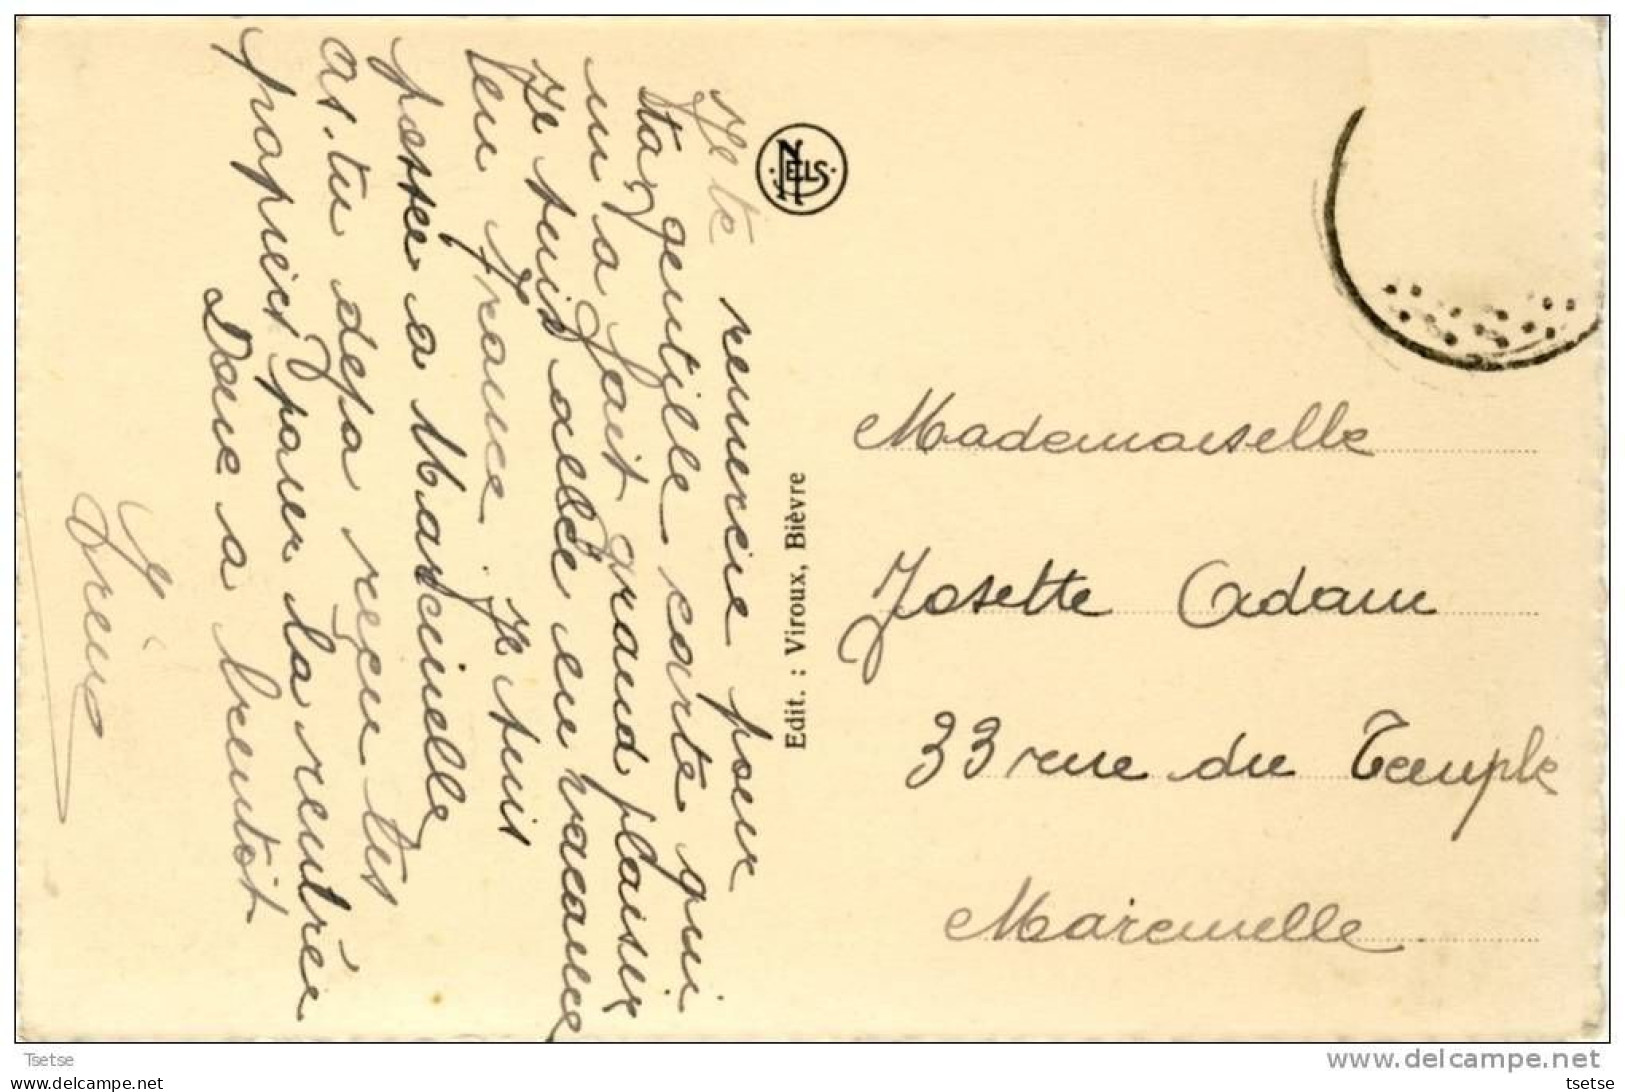 Je te remercie pour
ta gentille carte qui
m'a fait grand plaisir
Je suis allée en vacance
en France. Je suis
passée a Marcinelle
as-tu deja reçu tes
papiers pour la rentrée
Donc a bientot
NELS
Edit. : Viroux, Bièvre
Mademoiselle
Josette Adam
33 rue du Temple
Marcinelle
Tsetse
www.delcampe.net
tsetse